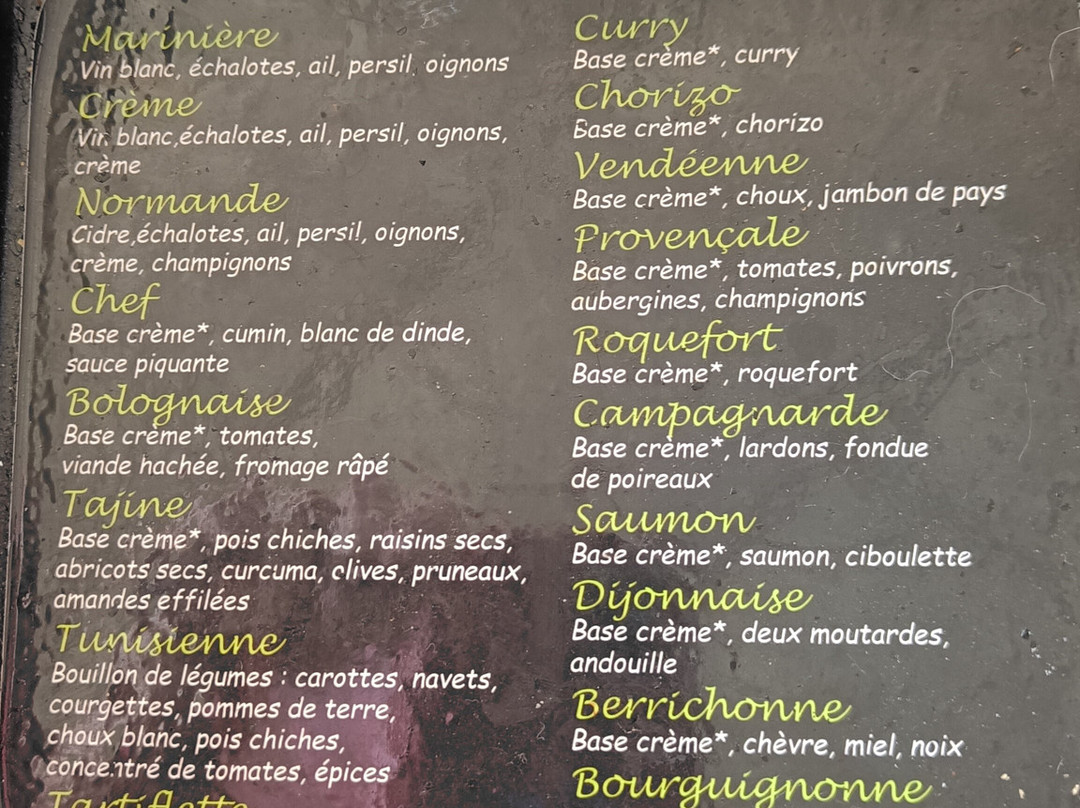 Marinière
Vin blanc, échalotes, ail, persil, oignons
Crème
Vin blanc,échalotes, ail, persil, oignons,
crème
Normande
Cidre,échalotes, ail, persil, oignons,
crème, champignons
Chef
Base crème*, cumin, blanc de dinde,
sauce piquante
Bolognaise
Base crème*, tomates,
viande hachée, fromage râpé
Tajine
Base crème*, pois chiches, raisins secs,
abricots secs, curcuma, olives, pruneaux,
amandes effilées
Tunisienne
Bouillon de légumes : carottes, navets,
courgettes, pommes de terre,
choux blanc, pois chiches,
concentré de tomates, épices
Tartiflette
Curry
Base crème*, curry
Chorizo
Base crème*, chorizo
Vendéenne
Base crème*, choux, jambon de pays
Provençale
Base crème*, tomates, poivrons,
aubergines, champignons
Roquefort
Base crème*, roquefort
Campagnarde
Base crème*, lardons, fondue
de poireaux
Saumon
Base crème*, saumon, ciboulette
Dijonnaise
Base crème*, deux moutardes,
andouille
Berrichonne
Base crème*, chèvre, miel, noix
Bourguignonne